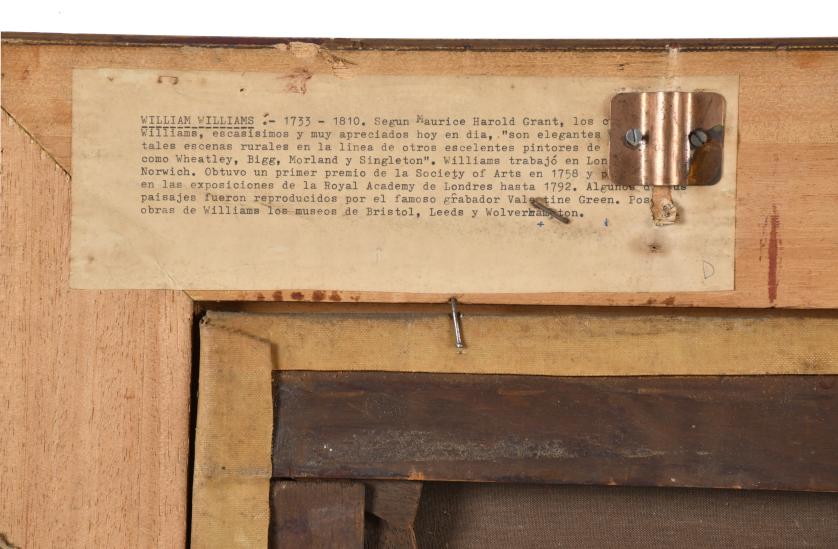 WILLIAM WILLIAMS .- 1733 - 1810. Segun Maurice Harold Grant, los
Williams, escasísimos y muy apreciados hoy en dia, "son elegantes
tales escenas rurales en la línea de otros escelentes pintores de
como Wheatley, Bigg, Morland y Singleton". Williams trabajó en Lon
Norwich. Obtuvo un primer premio de la Society of Arts en 1758 y
en las exposiciones de la Royal Academy de Londres hasta 1792. Algunos
paisajes fueron reproducidos por el famoso grabador Valentine Green. Pos
obras de Williams los museos de Bristol, Leeds y Wolverhampton.
D